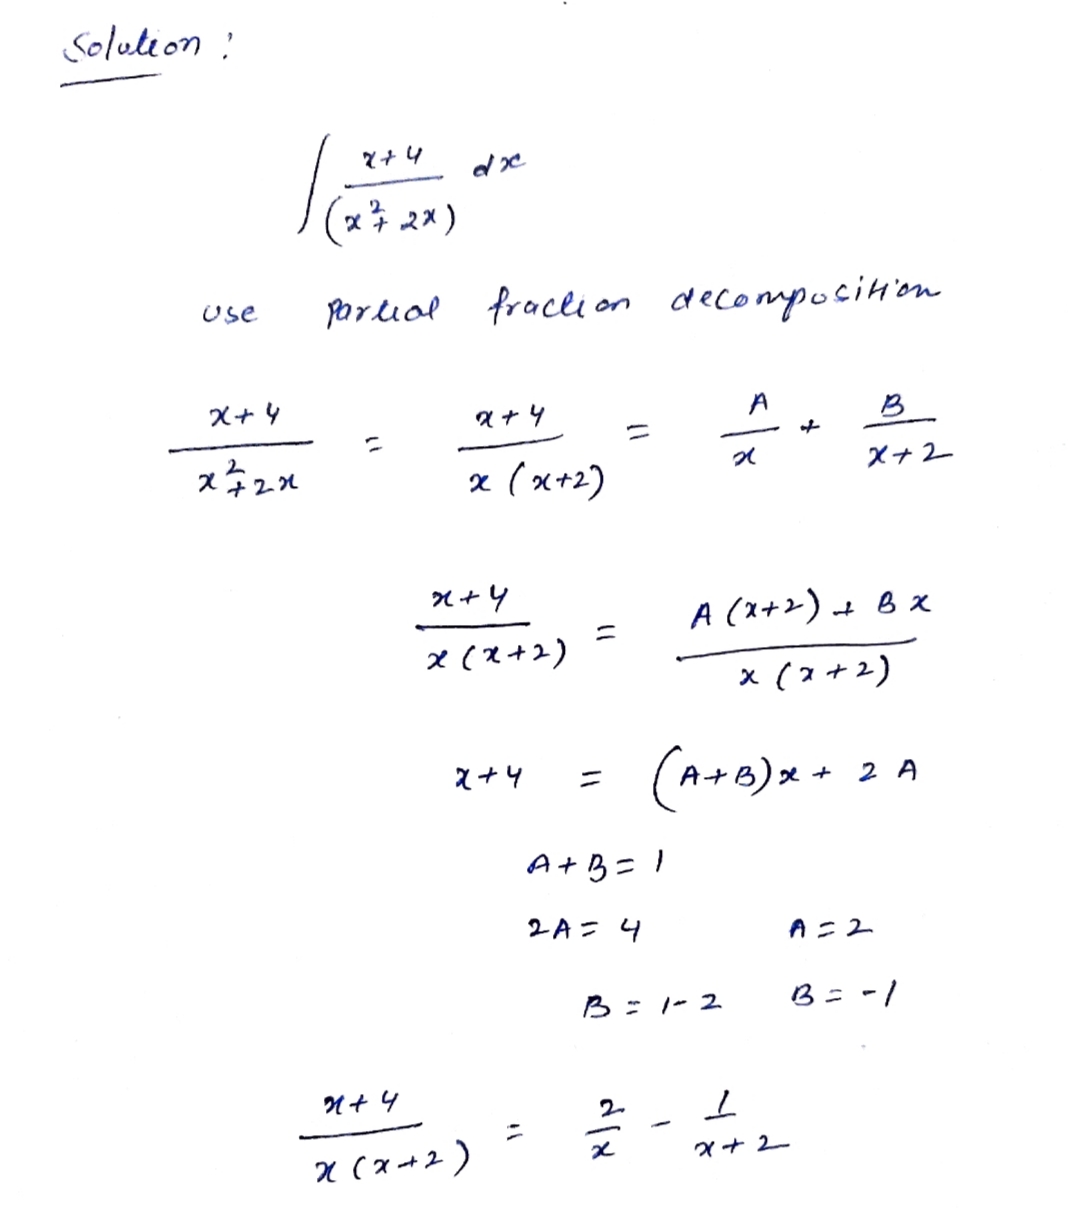 Solution :
∫ (x+4)/(x²+2x) dx
use partial fraction decomposition
(x+4)/(x²+2x) = (x+4)/(x(x+2)) = A/x + B/(x+2)
(x+4)/(x(x+2)) = (A(x+2) + Bx)/(x(x+2))
x+4 = (A+B)x + 2A
A+B=1
2A=4 A=2
B=1-2 B=-1
(x+4)/(x(x+2)) = 2/x - 1/(x+2)